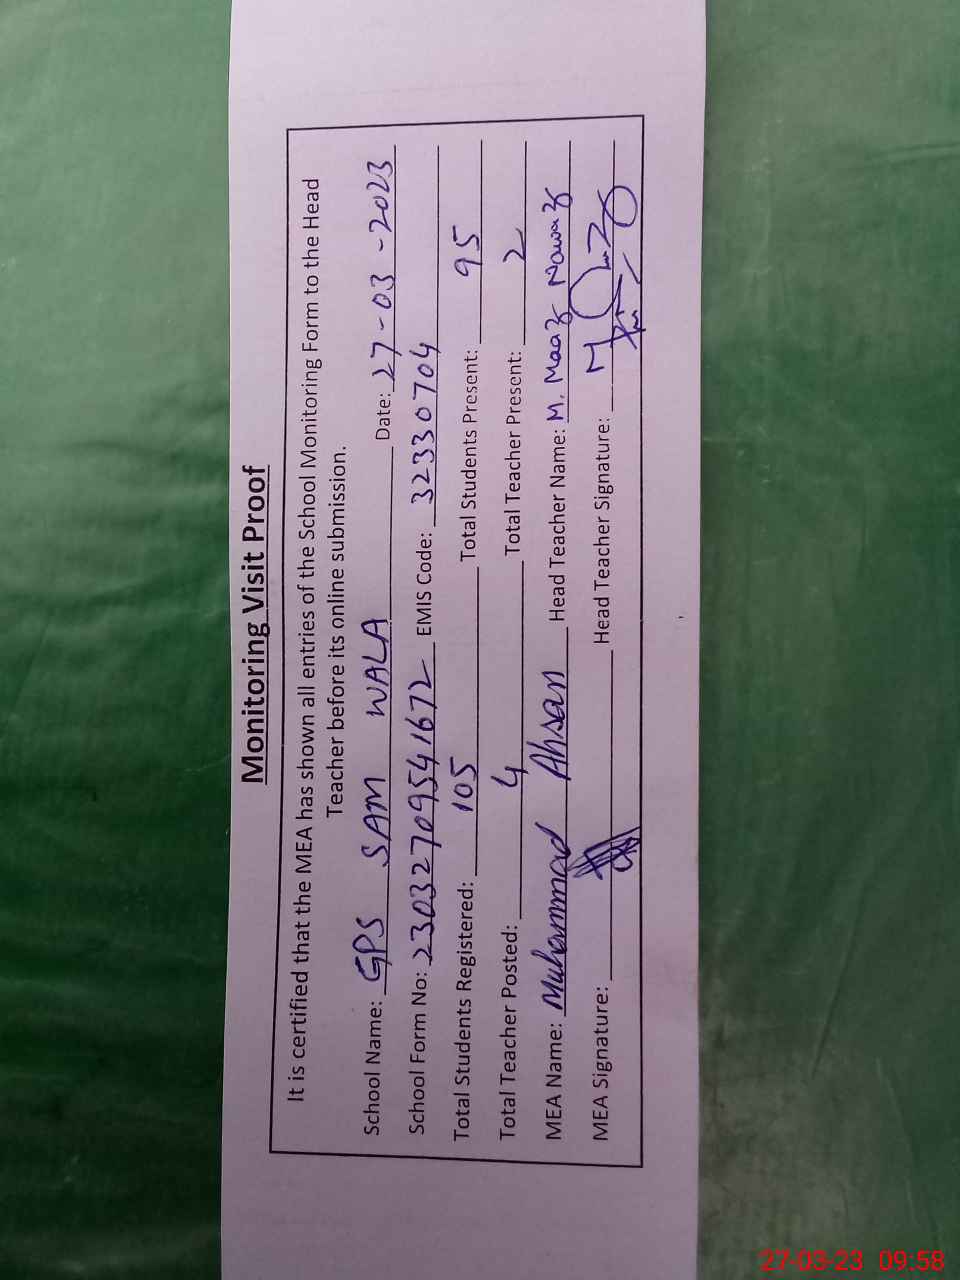 Monitoring Visit Proof
It is certified that the MEA has shown all entries of the School Monitoring Form to the Head
Teacher before its online submission.
School Name: GPS SAM WALA Date: 27-03-2023
School Form No: 23032709541672 EMIS Code: 32330704
Total Students Registered: 105 Total Students Present: 95
Total Teacher Posted: 4 Total Teacher Present: 2
MEA Name: Muhammad Ahsan Head Teacher Name: M. Maaz Nawaz
MEA Signature: Head Teacher Signature:
27-03-23 09:58